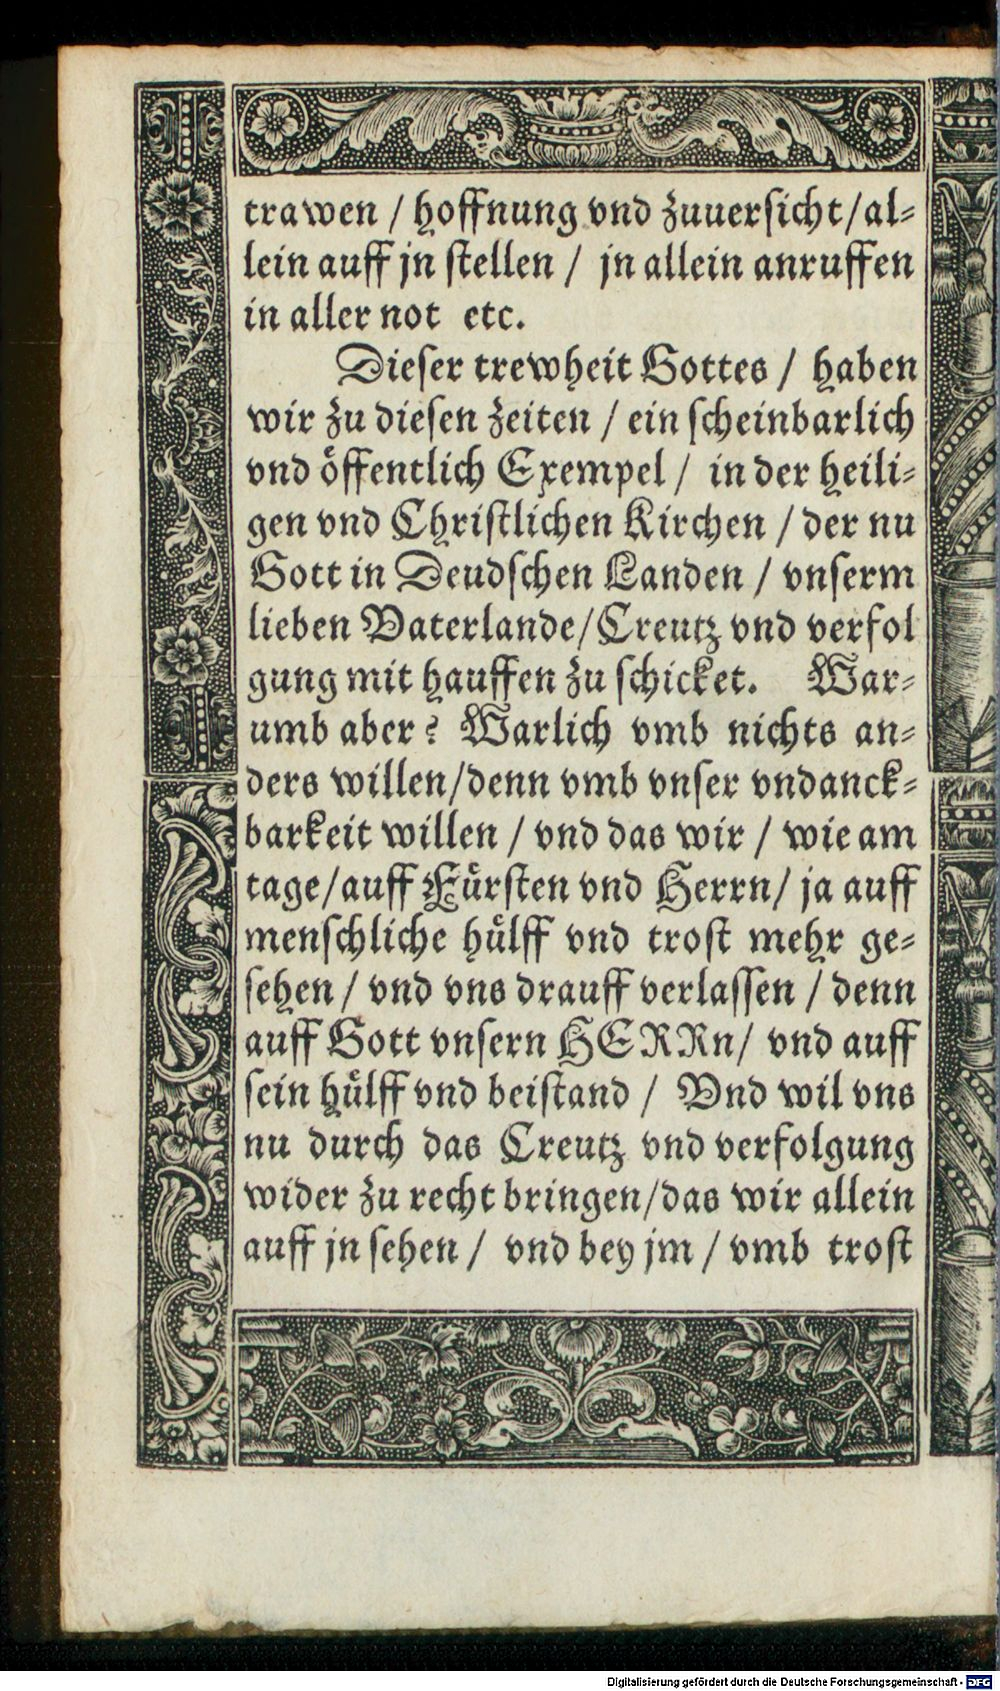 trawen / hoffnung vnd zuuersicht / al-
lein auff jn stellen / jn allein anruffen
in aller not etc.
Dieser trewheit Gottes / haben
wir zu diesen zeiten / ein scheinbarlich
vnd öffentlich Exempel / in der heili-
gen vnd Christlichen Kirchen / der nu
Gott in Deudschen Landen / vnserm
lieben Vaterlande / Creutz vnd verfol
gung mit hauffen zu schicket. War-
umb aber? Warlich vmb nichts an-
ders willen / denn vmb vnser vndanck-
barkeit willen / vnd das wir / wie am
tage / auff Fürsten vnd Herrn / ja auff
menschliche hülff vnd trost mehr ge-
sehen / vnd vns drauff verlassen / denn
auff Gott vnsern HERRn / vnd auff
sein hülff vnd beistand / Vnd wil vns
nu durch das Creutz vnd verfolgung
wider zu recht bringen / das wir allein
auff jn sehen / vnd bey jm / vmb trost
Digitalisierung gefördert durch die Deutsche Forschungsgemeinschaft - DFG